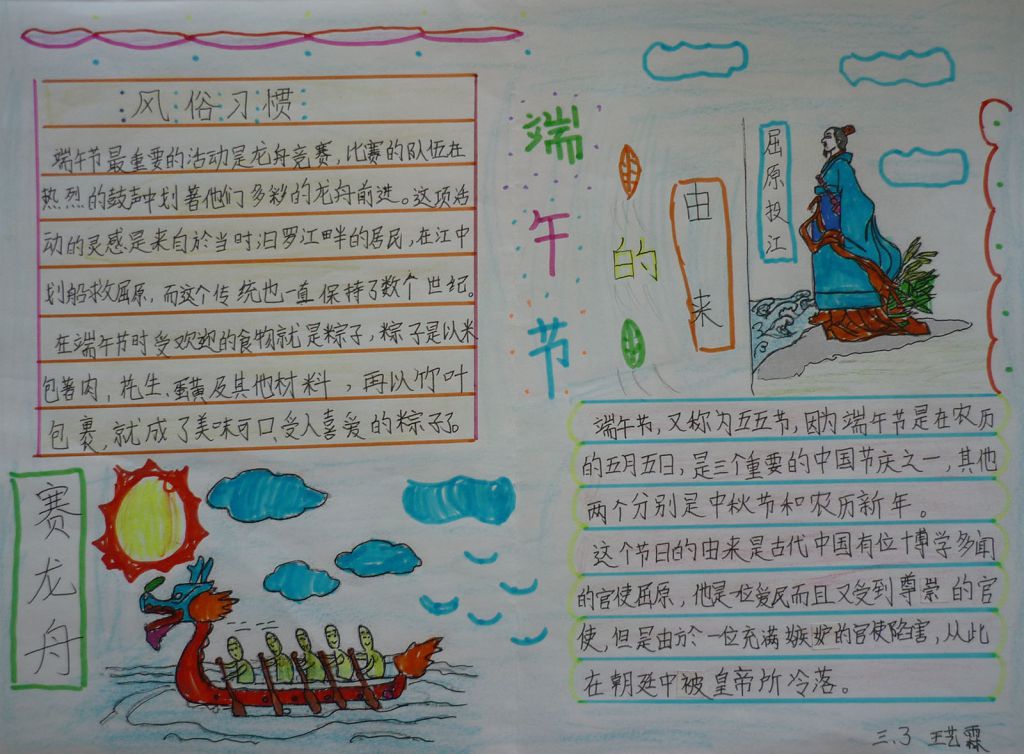 风俗习惯
端午节最重要的活动是龙舟竞赛，比赛的队伍在
热烈的鼓声中划著他们多彩的龙舟前进。这项活
动的灵感是来自於当时汨罗江畔的居民，在江中
划船救屈原，而这个传统也一直保持了数个世纪。
在端午节时受欢迎的食物就是粽子，粽子是以米
包著肉、花生、蛋黄及其他材料，再以竹叶
包裹，就成了美味可口受人喜爱的粽子。
赛龙舟
端午节
的
由来
屈原投江
端午节，又称为五五节，因为端午节是在农历
的五月五日，是三个重要的中国节庆之一，其他
两个分别是中秋节和农历新年。
这个节日的由来是古代中国有位博学多闻
的官使屈原，他是一位爱民而且又受到尊崇的官
使，但是由於一位充满嫉妒的官使陷害，从此
在朝廷中被皇帝所冷落。
三.3 王艺霖